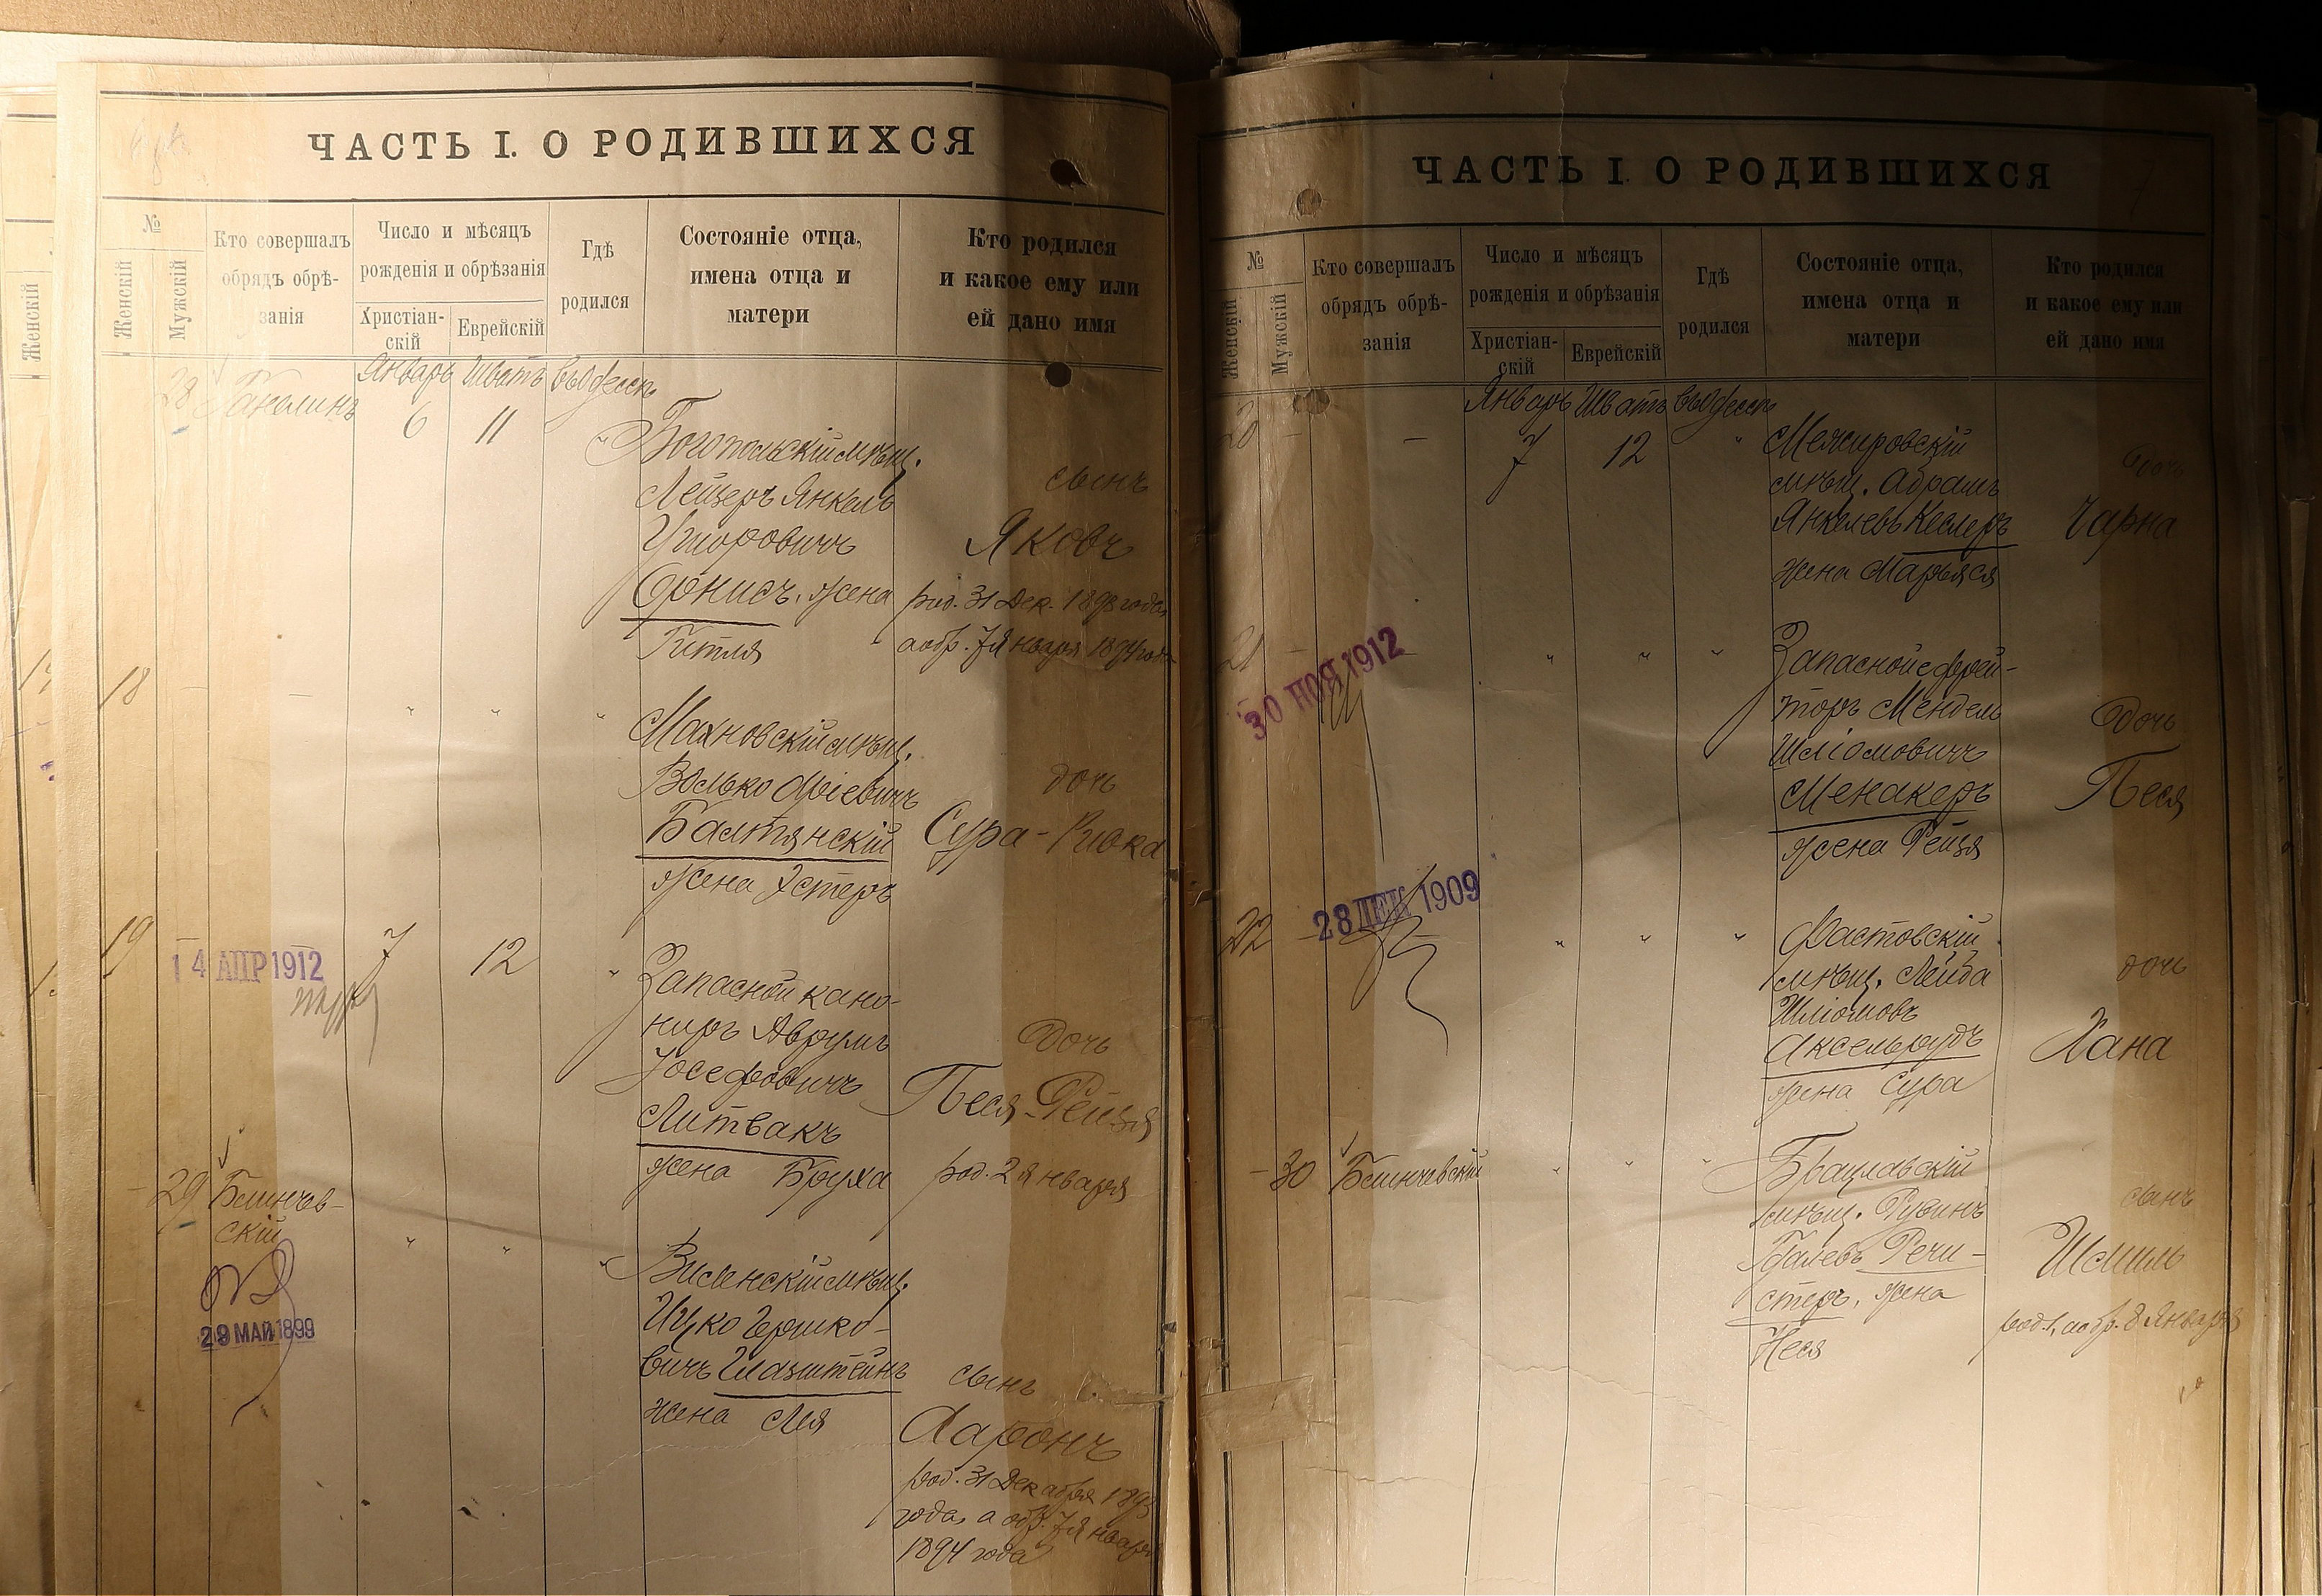 ЧАСТЬ I. О РОДИВШИХСЯ
№
Женскій
Мужскій
Кто совершалъ
обрядъ обрѣ-
занія
Число и мѣсяцъ
рожденія и обрѣзанія
Христіан-
скій
Еврейскій
Гдѣ
родился
Состояніе отца,
имена отца и
матери
Кто родился
и какое ему или
ей дано имя
28
Январь Шватъ въ Одессѣ
6 11 "
Богопольскій мѣщ.
Лейзеръ Янкель
жена
Гитля
сынъ
Яковъ
род. 31 Дек. 1893 года,
а обр. 7 Января 1894 года
18 - -
" " "
Махновскій мѣщ.
Волько
Балтянскій
жена Эстеръ
дочь
Сура-Ривка
19 - -
14 АПР 1912
7 12 "
Запасной кано-
ниръ Аврумъ
Іосефовичъ
Литвакъ
жена Бруха
дочь
Песя-Рейзя
род. 2 Января
- 29 Блинчев-
скій
29 МАЙ 1899
" " "
Виленскій мѣщ.
Ицко Гершко-
вичъ Глазштейнъ
жена Лея
сынъ
Ааронъ
род. 31 Декабря 1893
года, а обр. 7 Января
1894 года
ЧАСТЬ I. О РОДИВШИХСЯ
7
№
Женскій
Мужскій
Кто совершалъ
обрядъ обрѣ-
занія
Число и мѣсяцъ
рожденія и обрѣзанія
Христіан-
скій
Еврейскій
Гдѣ
родился
Состояніе отца,
имена отца и
матери
Кто родился
и какое ему или
ей дано имя
20 - -
Январь Шватъ въ Одессѣ
7 12 "
Межировскій
мѣщ. Абрамъ
Янкелевъ Кеслеръ
жена Марьяся
дочь
Чарна
21 - -
30 НОЯ 1912
" " "
Запасной ефрей-
торъ Мендель
Шліомовичъ
Менакеръ
жена Рейзя
дочь
Песя
22 - -
28 ДЕК 1909
" " "
Фастовскій
мѣщ. Лейба
Шліомовъ
Аксельрудъ
жена Сура
дочь
Хана
- 30 Блинчевскій
" " "
Брацлавскій
мѣщ. Рувинъ
Гдалевъ Речи-
стеръ, жена
Неся
сынъ
Шмиль
род. 1, а обр. 8 Января